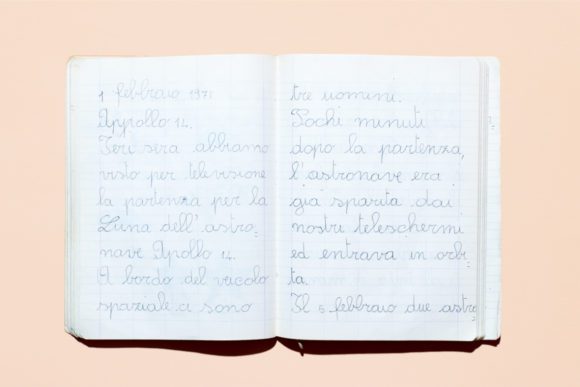 1 febbraio 1971
Appollo 14.
Ieri sera abbiamo
visto per televisione
la partenza per la
Luna dell'astro=
nave Apollo 14.
A bordo del veicolo
spaziale ci sono
tre uomini.
Pochi minuti
dopo la partenza,
l'astronave era
già sparita dai
nostri teleschermi
ed entrava in orbi=
ta.
Il 5 febbraio due astro=